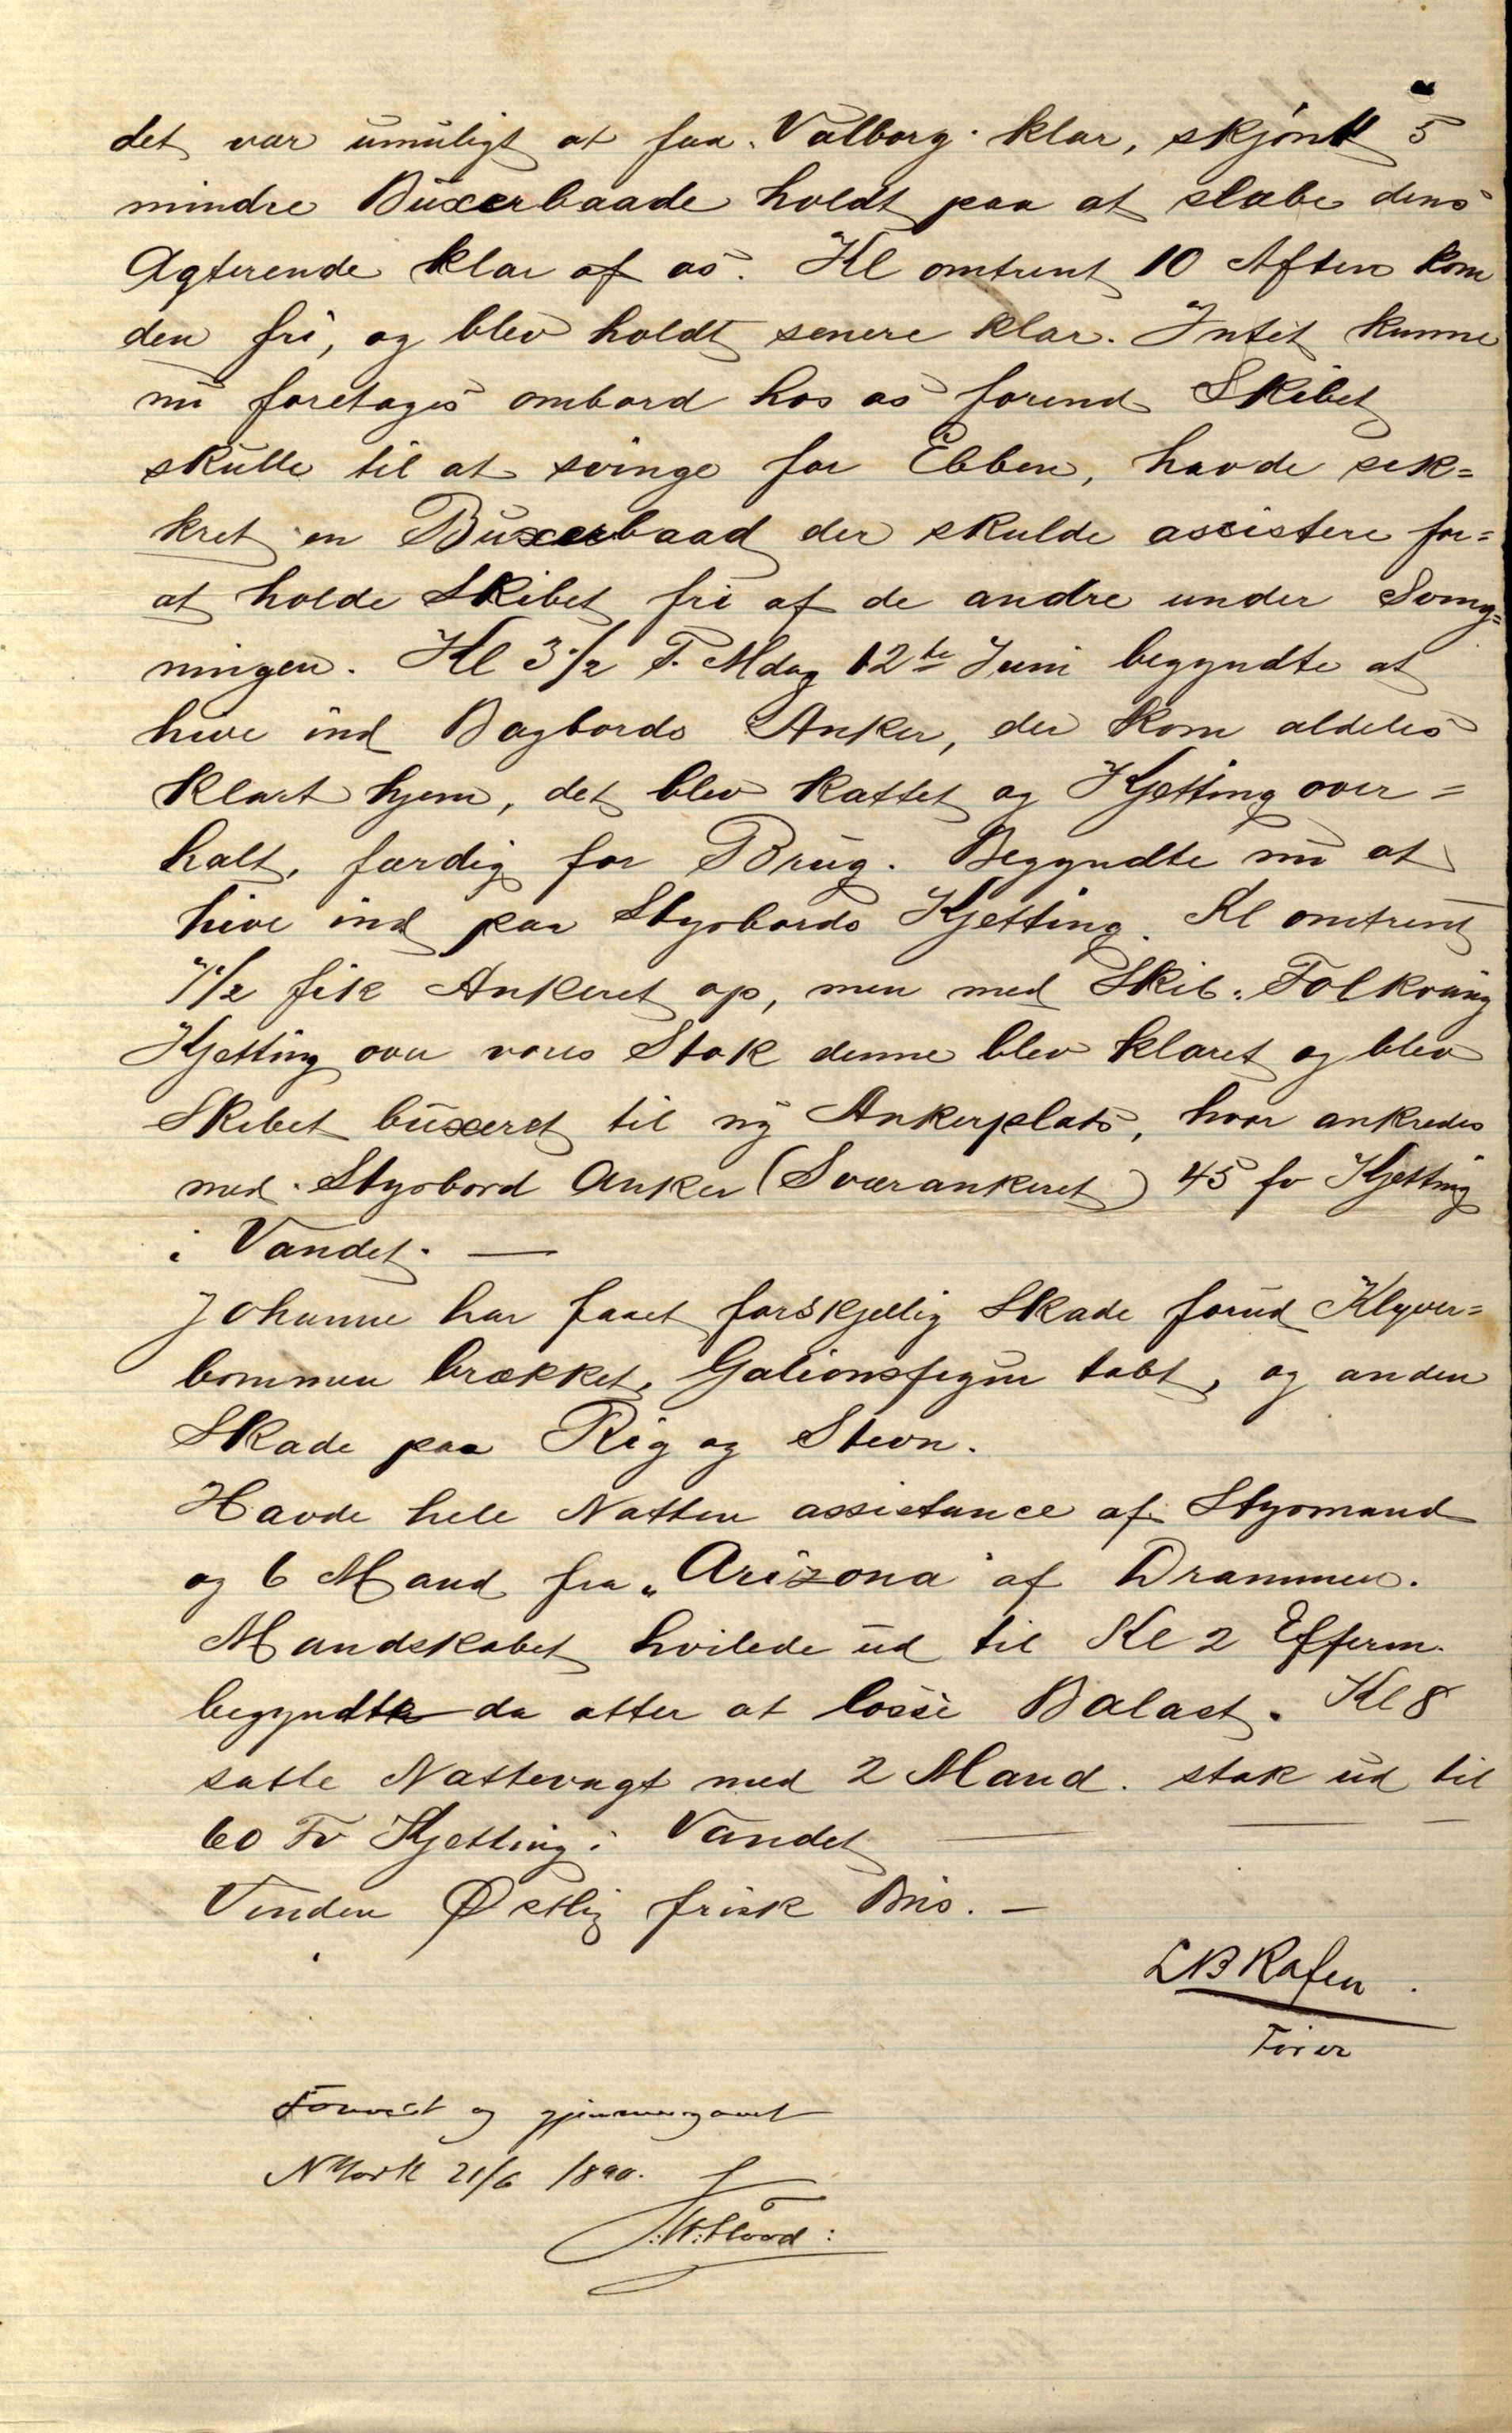 det var umuligt at faa „Valborg“ klar, skjönt 5
mindre Buxerbaade holdt paa at slæbe dens
Agterende klar af os. Kl omtrent 10 Aften kom
den fri, og blev holdt senere klar. Intet kunne
nu foretages ombord hos os forend Skibet
skulle til at svinge for Ebben, havde sek=
kret en Buxerbaad der skulde assistere for=
at holde Skibet fri af de andre under Sving=
ningen. Kl 3 1/2 F.Mdag 12te Juni begyndte at
hive ind Bagbords Anker, der kom aldeles
klart hjem, det blev kattet og Kjetting over=
halt, færdig for Brug. Begyndte nu at
hive ind paa Styrbords Kjetting. Kl omtrent
7 1/2 fik Ankeret op, men med Skib „Folkvang
Kjetting over vores Stok denne blev klaret og blev
Skibet buxeret til ny Ankerplats, hvor ankredes
med Styrbord Anker (Sværankeret) 45 fv Kjetting
i Vandet. —
Johanne har faaet forskjellig Skade forud Klyver=
bommen brækket, Galionsfigur tabt, og anden
Skade paa Rig og Stevn.
Havde hele Natten assistance af Styrmand
og 6 Mand fra „Arizona“ af Drammen.
Mandskabet hvilede ud til Kl 2 Efterm.
begyndte da atter at losse Balast. Kl 8
satte Nattevagt med 2 Mand. stak ud til
60 Fv Kjetting i Vandet —
Vinden Østlig frisk Bris. —
LB Rafen
Fører
Forevist og gjennemgaaet
NYork 21/6 1890.